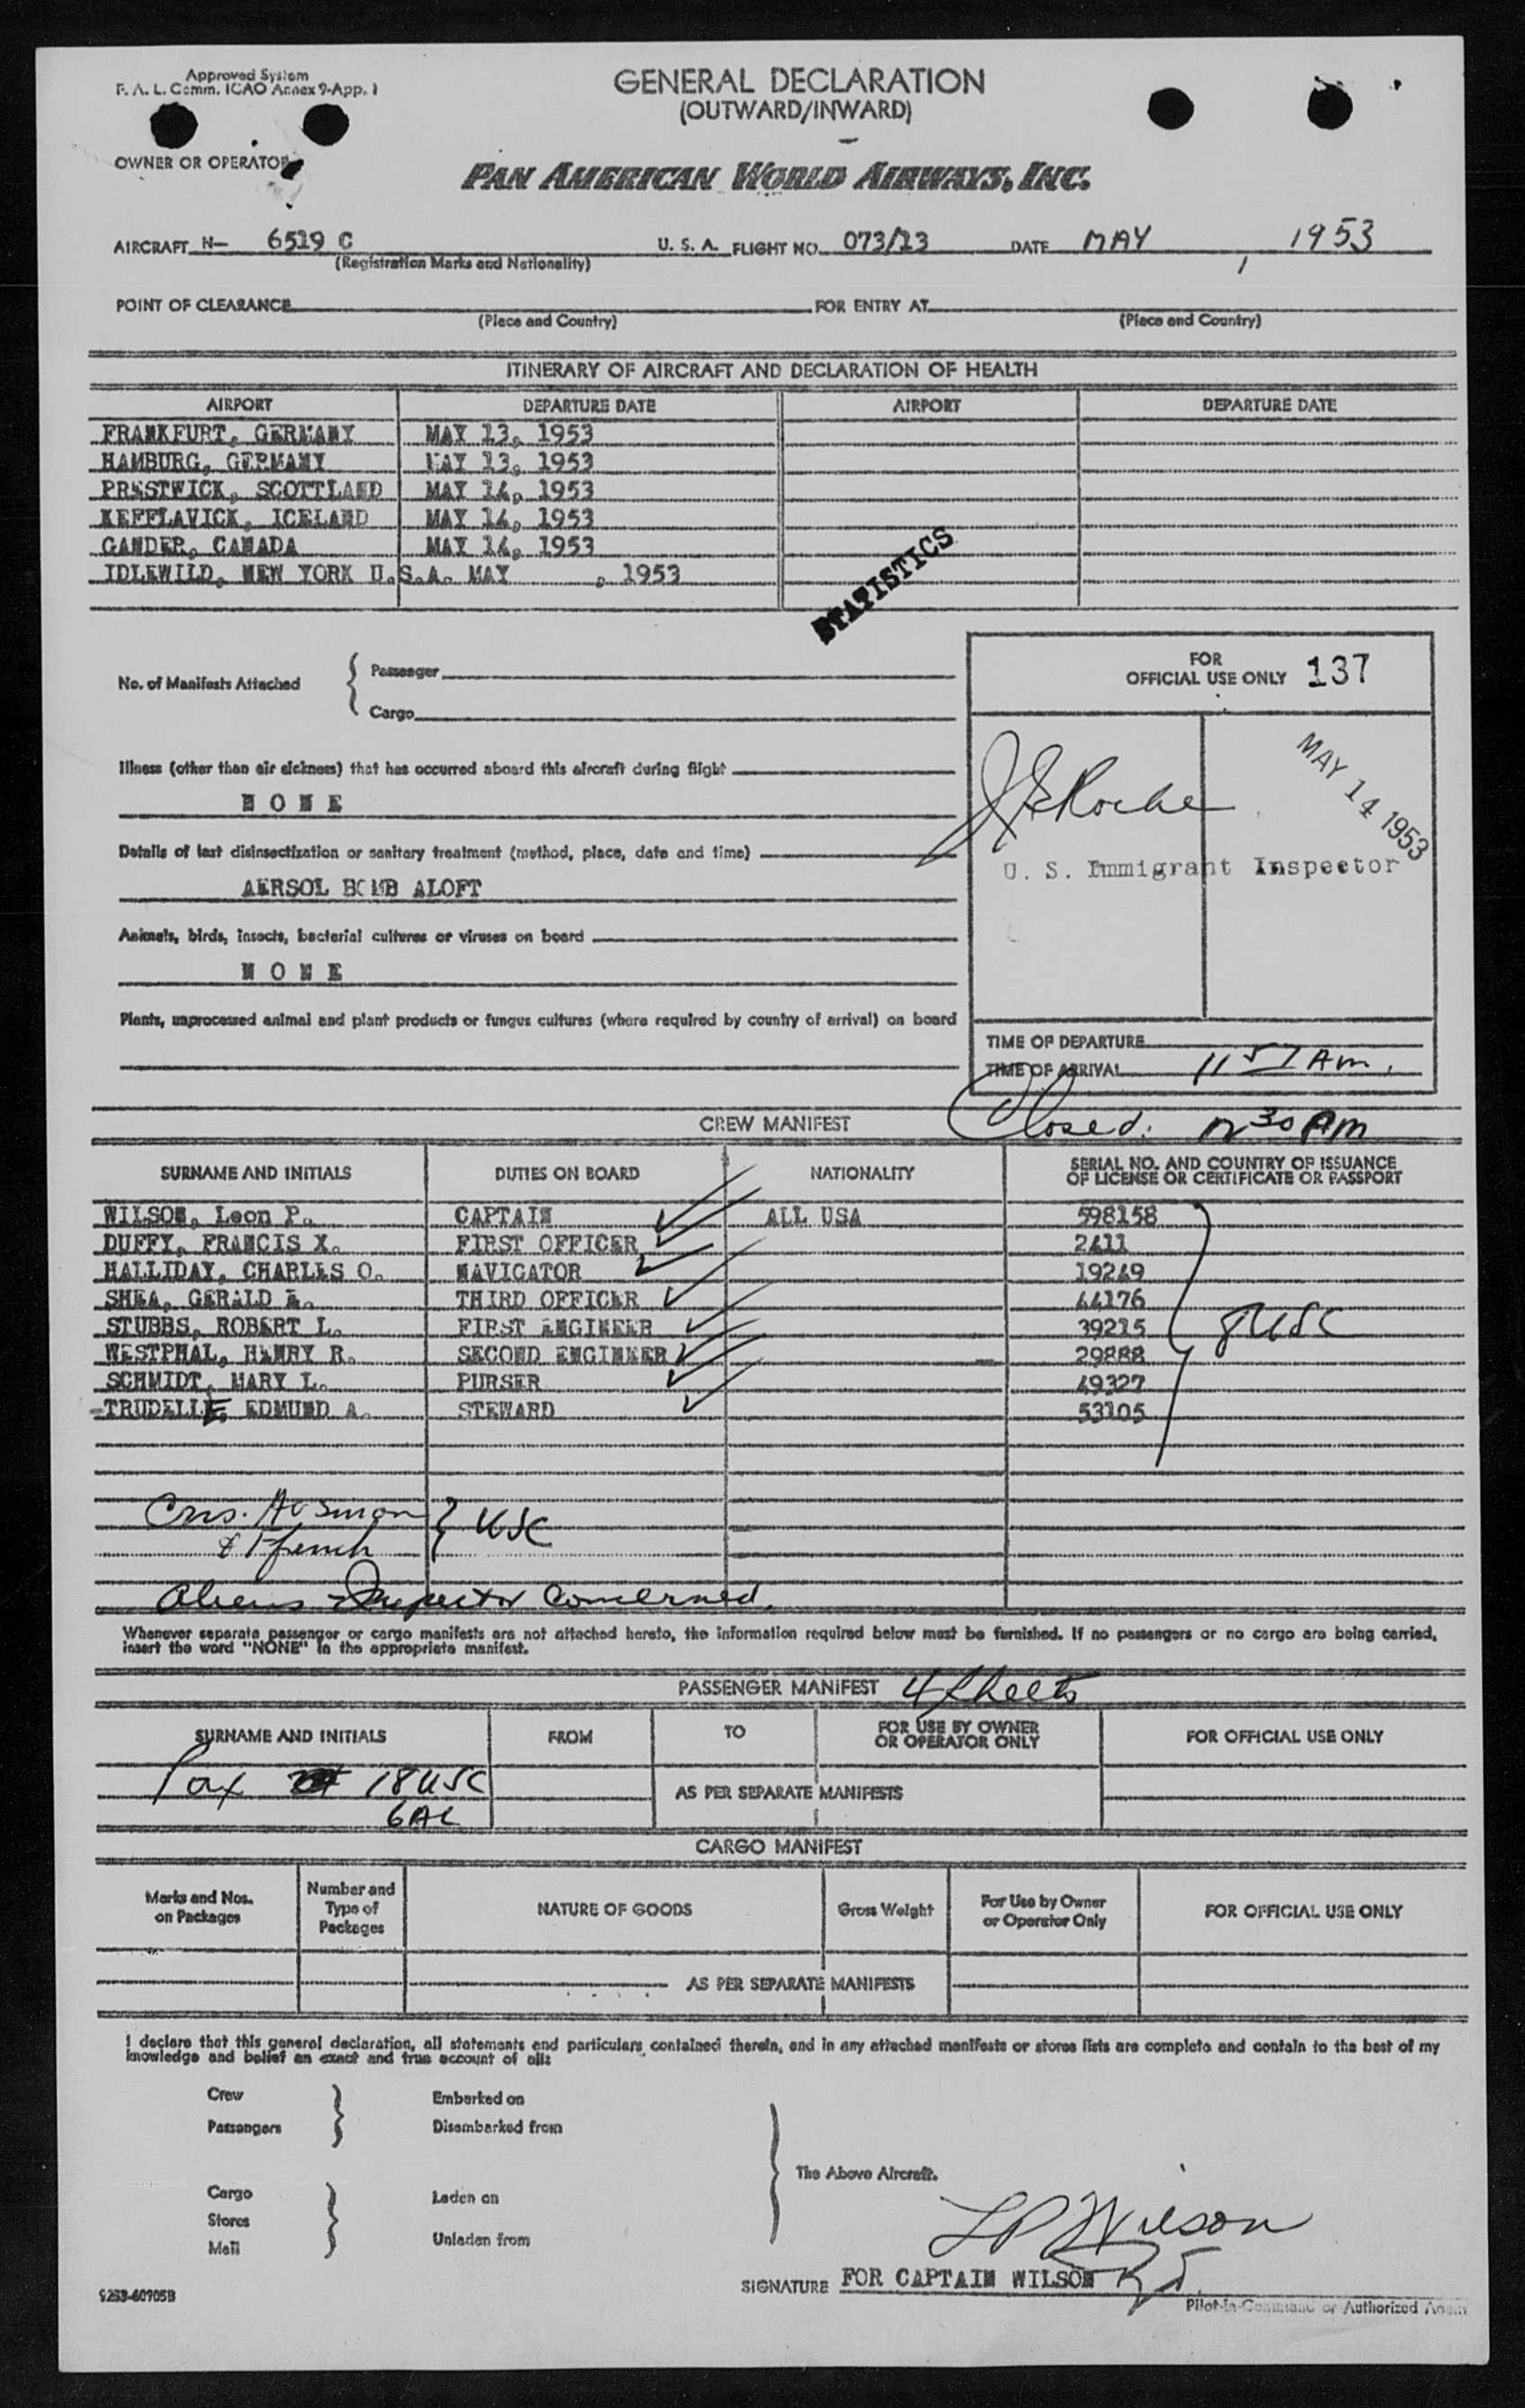 Approved System
F. A. L. Comm. ICAO Annex 9-App. 1
GENERAL DECLARATION
(OUTWARD/INWARD)
OWNER OR OPERATOR
PAN AMERICAN WORLD AIRWAYS, INC.
AIRCRAFT N- 6519 C U. S. A. FLIGHT NO. 073/13 DATE MAY , 1953
(Registration Marks and Nationality)
POINT OF CLEARANCE FOR ENTRY AT
(Place and Country) (Place and Country)
ITINERARY OF AIRCRAFT AND DECLARATION OF HEALTH
AIRPORT DEPARTURE DATE AIRPORT DEPARTURE DATE
FRANKFURT, GERMANY MAY 13, 1953
HAMBURG, GERMANY MAY 13, 1953
PRESTWICK, SCOTTLAND MAY 14, 1953
KEFFLAVICK, ICELAND MAY 14, 1953
GANDER, CANADA MAY 14, 1953
IDLEWILD, NEW YORK U.S.A. MAY , 1953
STATISTICS
No. of Manifests Attached { Passenger
Cargo
FOR
OFFICIAL USE ONLY 137
Illness (other than air sickness) that has occurred aboard this aircraft during flight
N O N E
MAY 14 1953
J E Roche
U. S. Immigrant Inspector
Details of last disinsectization or sanitary treatment (method, place, date and time)
AERSOL BOMB ALOFT
Animals, birds, insects, bacterial cultures or viruses on board
N O N E
Plants, unprocessed animal and plant products or fungus cultures (where required by country of arrival) on board
TIME OF DEPARTURE
TIME OF ARRIVAL 11 57 AM.
Closed: 12 30 PM
CREW MANIFEST
SURNAME AND INITIALS DUTIES ON BOARD NATIONALITY SERIAL NO. AND COUNTRY OF ISSUANCE
OF LICENSE OR CERTIFICATE OR PASSPORT
WILSON, Leon P. CAPTAIN ALL USA 598158
DUFFY, FRANCIS X. FIRST OFFICER 2411
HALLIDAY, CHARLES O. NAVIGATOR 19249
SHEA, GERALD E. THIRD OFFICER 44176
STUBBS, ROBERT L. FIRST ENGINEER 39215
8 USC
WESTPHAL, HENRY R. SECOND ENGINEER 29888
SCHMIDT, MARY L. PURSER 49327
TRUDELLE, EDMUND A. STEWARD 53105
USC
&
Aliens - Inspector Concerned.
Whenever separate passenger or cargo manifests are not attached hereto, the information required below must be furnished. If no passengers or no cargo are being carried,
insert the word "NONE" in the appropriate manifest.
PASSENGER MANIFEST 4 Sheets
SURNAME AND INITIALS FROM TO FOR USE BY OWNER
OR OPERATOR ONLY FOR OFFICIAL USE ONLY
Pax 18 USC
6 AL
AS PER SEPARATE MANIFESTS
CARGO MANIFEST
Marks and Nos.
on Packages
Number and
Type of
Packages
NATURE OF GOODS
Gross Weight
For Use by Owner
or Operator Only
FOR OFFICIAL USE ONLY
AS PER SEPARATE MANIFESTS
I declare that this general declaration, all statements and particulars contained therein, and in any attached manifests or stores lists are complete and contain to the best of my
knowledge and belief an exact and true account of all:
Crew
Passengers
Embarked on
Disembarked from
The Above Aircraft.
Cargo
Stores
Mail
Laden on
Unladen from
LP Wilson
SIGNATURE FOR CAPTAIN WILSON
Pilot-in-Command or Authorized Agent
9253-60905B